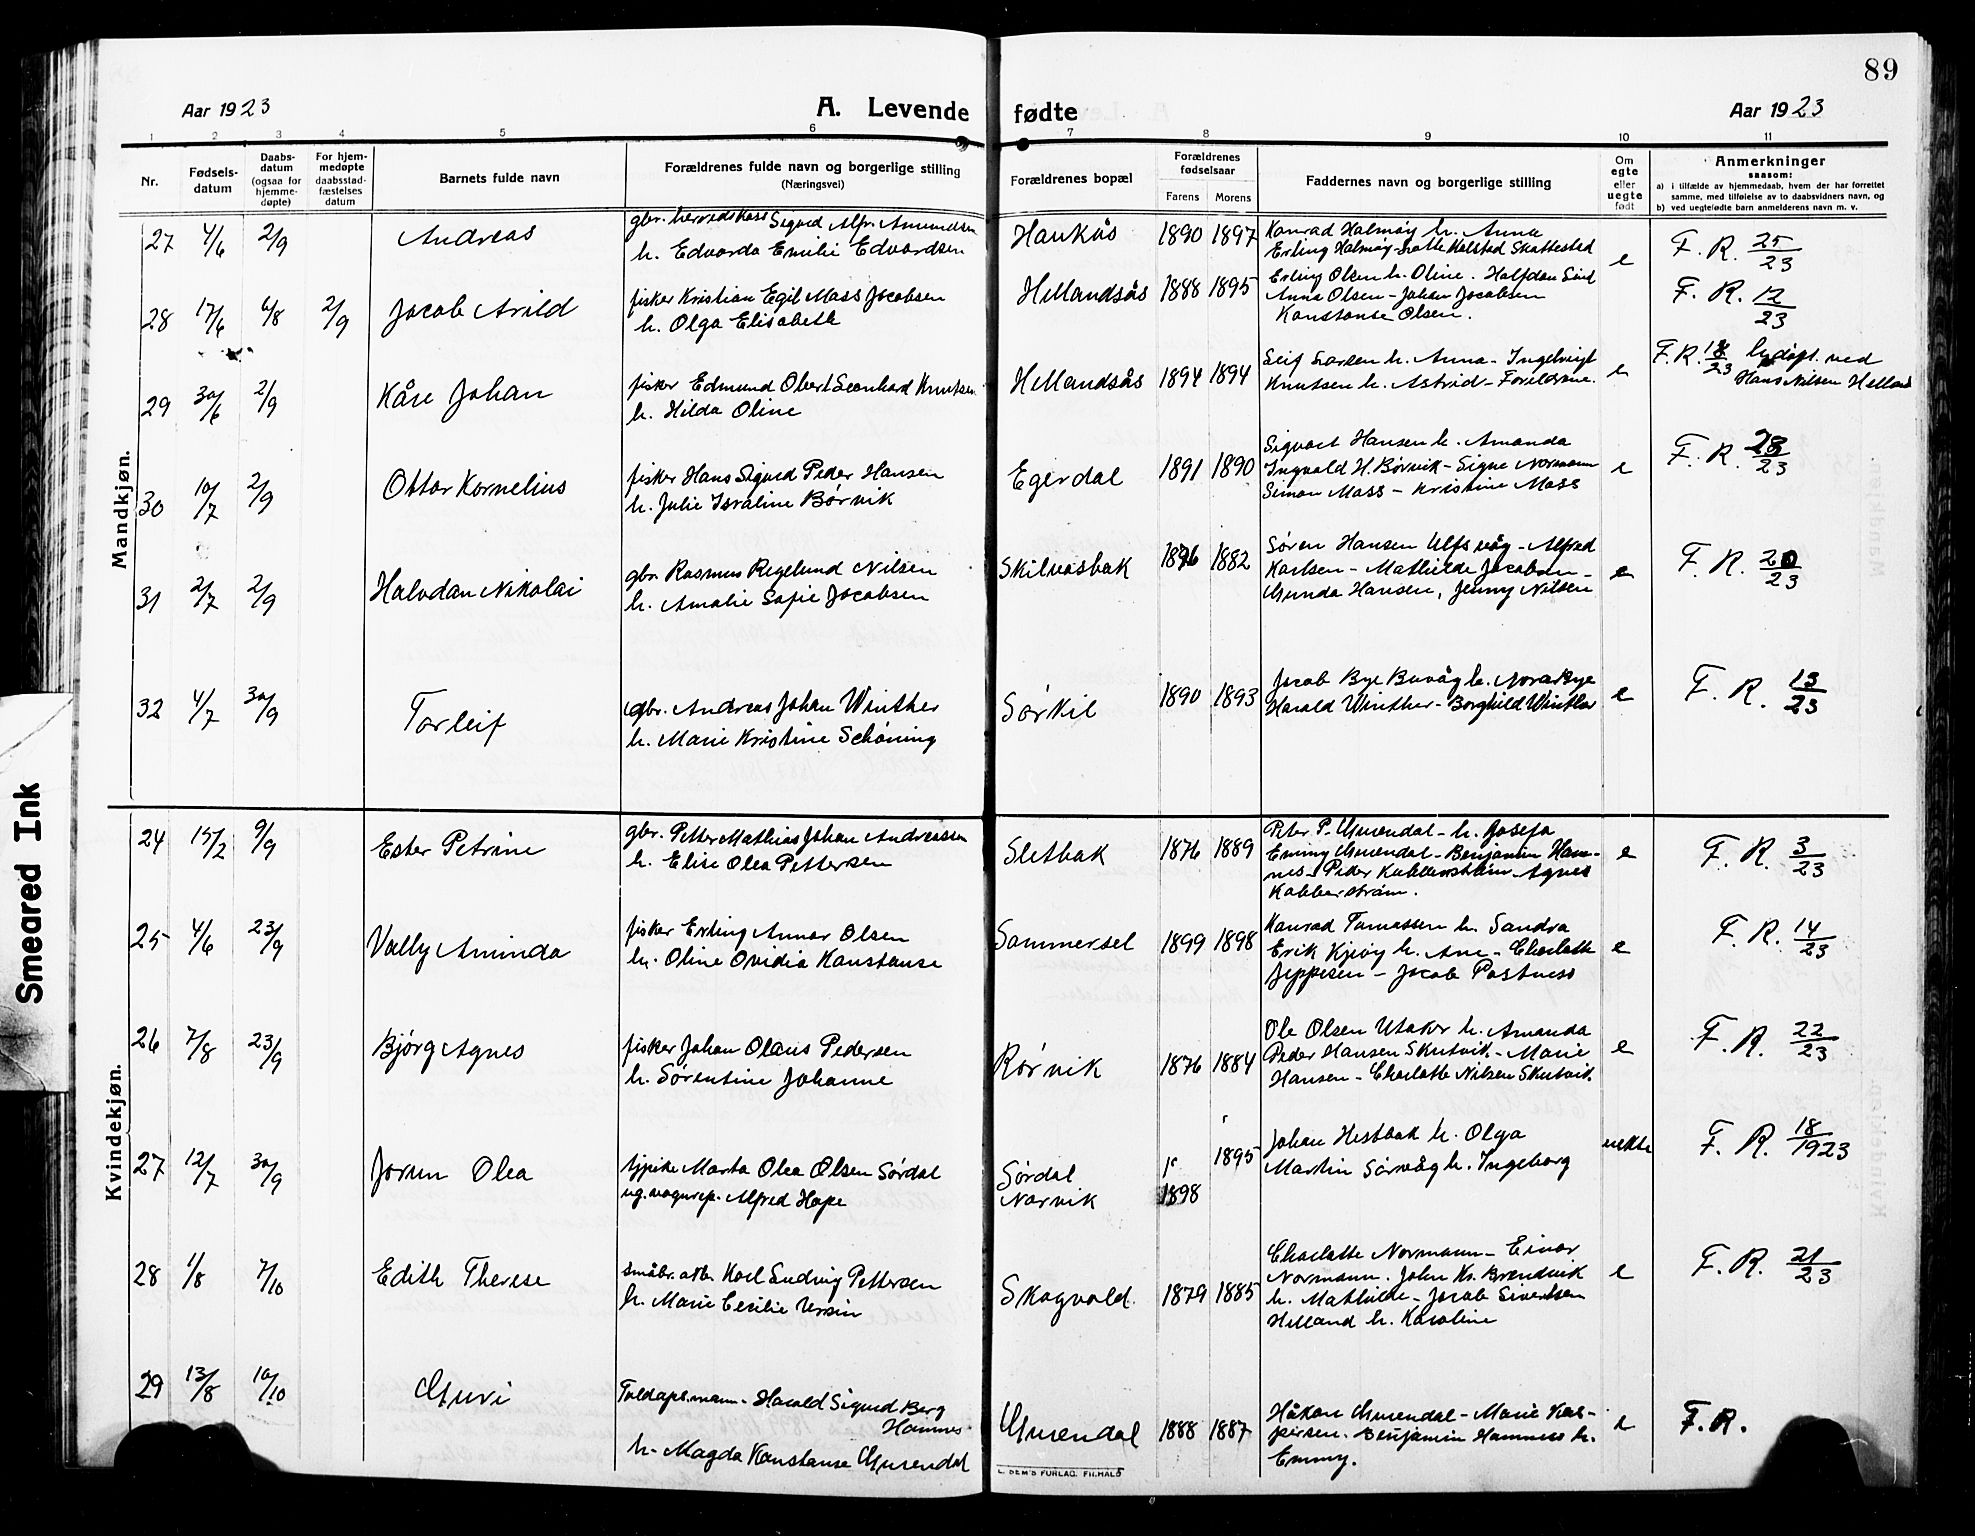 89
Aar 1923 A. Levende fødte Aar 1923
1 2 3 4 5 6 7 8 9 10 11
Nr.
Fødsels-
datum
Daabs-
datum
(ogsaa for
hjemme-
døpte)
For hjem-
medøpte
daabsstad-
fæstelses
datum
Barnets fulde navn
Forældrenes fulde navn og borgerlige stilling
(Næringsvei)
Forældrenes bopæl
Forældrenes
fødselsaar
Farens Morens
Faddernes navn og borgerlige stilling
Om
egte
eller
uegte
født
Anmerkninger
saasom:
a) i tilfælde av hjemmedaab, hvem der har forrettet
samme, med tilføielse av to daabsvidners navn, og
b) ved uegtefødte barn anmelderens navn m. v.
Mandkjøn.
27 4/6 2/9 Andreas
gbr. herredskass Sigurd Alfr. Amundsen
h. Edvarda Emilie Edvardsen
Haukås 1890 1897
Konrad Halmøy h. Anna
Erling Halmøy - Kalstad Skattestad
e F. R. 25/23
28 17/6 6/8 2/9 Jacob Arild
fisker Kristian Egil Mass Jacobsen
h. Olga Elisabeth
Hellandsås 1888 1895
Erling Olsen h. Oline. Halfdan
Anna Olsen - Johan Jacobsen
Konstanse Olsen.
F. R. 12/23
29 30/6 2/9 Kåre Johan
fisker Edmund Obert Leonhard Knutsen
h. Hilda Oline
Hellandsås 1894 1894
Leif Larsen h. Anna - Ingebrigt
Knutsen h. Astrid - Foreldrene.
e F. R. 18/23 hjdøpt. ved
Hans Nilsen Helland
30 10/7 2/9 Ottar Kornelius
fisker Hans Sigurd Peder Hansen
h. Julie Israline Børvik
Egerdal 1891 1890
Sigvart Hansen h. Amanda
Ingvald H. Børvik - Signe Normann
Simon Mass - Kristine Mass
e F. R. 28/23
31 2/7 2/9 Halvdan Nikolai
gbr. Rasmus Regelund Nilsen
h. Amalie Sofie Jacobsen
Skilvasbak 1876 1882
Søren Hansen Ulfsvåg - Alfred
Karlsen - Mathilde Jacobsen -
Gunda Hansen, Jenny Nilsen
e F. R. 20/23
32 4/7 30/9 Torleif
gbr. Andreas Johan Winther
h. Marie Kristine Schøning
Sørkil 1890 1893
Jacob Bye Buvåg h. Nora Bye
Harald Winther - Borghild Winther
e F. R. 13/23
Kvindekjøn.
24 15/2 9/9 Ester Petrine
gbr. Petter Mathias Johan Andreassen
h. Elise Olea Pettersen
Sletbak 1876 1889
Peter P. Gusendal - h. Josefa
Emmy Gusendal - Benjamin Ham-
nes - Peder Kobberstrøm - Agnes
Kobberstrøm.
e F. R. 3/23
25 4/6 23/9 Vally Aminda
fisker Erling Annar Olsen
h. Oline Ovidia Konstanse
Sommersel 1899 1898
Konrad Tomassen h. Sandra
Erik Kjeøy h. Ane - Charlotte
Jeppesen - Jacob Postness
e F. R. 14/23
26 7/8 23/9 Bjørg Agnes
fisker Johan Olaus Pedersen
h. Sørentine Johanne
Rørvik 1876 1884
Ole Olsen Utaker h. Amanda
Peder Hansen Skutvik. - Marie
Hansen - Charlotte Nilsen Skutvik.
e F. R. 22/23
27 12/7 30/9 Jorun Olea
tjpike Marta Olea Olsen Sørdal
ug. vognrep. Alfred Hope
Sørdal
Narvik
1898 1895
Johan Hestbak h. Olga
Martin Sørvåg h. Ingeborg
uekte F. R. 18/1923
28 1/8 7/10 Edith Therese
småbr. arb. Karl Ludvig Pettersen
h. Marie Cecilie Ursin
Skogvold. 1879 1885
Charlotte Normann - Einar
Normann. John Kr. Brendvik
h. Mathilde - Jacob Sivertsen
Helland h. Karoline
e F. R. 21/23
29 13/8 10/10 Guri
Toldops.mann. Harald Sigurd Berg
Hamnes
h. Magda Konstanse Gusendal
Gusendal 1888 1887
Håkon Gusendal - Marie Kas-
persen. Benjamin Hamnes h.
Emmy.
e F. R.
E. SEM'S FORLAG, FR.HALD
Smeared Ink